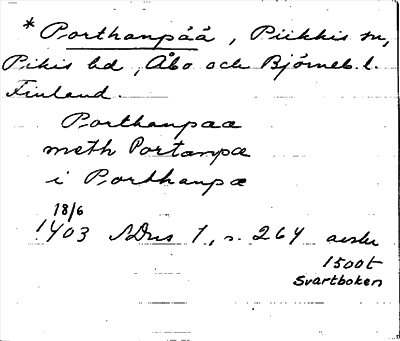 * Porthanpää, Piikkis sn,
Pikis hd, Åbo och Björneb. l.
Finland.
Porthanpaa
meth Portanpæ
i Porthanpæ
18/6
1403 SDns 1, s. 264 avskr
1500t
Svartboken